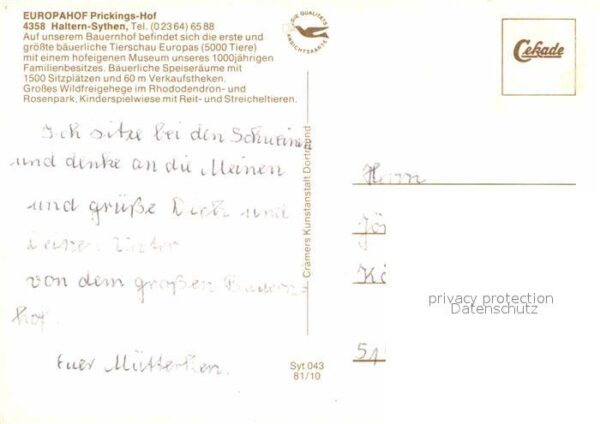 EUROPAHOF Prickings-Hof
4358 Haltern-Sythen, Tel. (0 23 64) 65 88
Auf unserem Bauernhof befindet sich die erste und
größte bäuerliche Tierschau Europas (5000 Tiere)
mit einem hofeigenen Museum unseres 1000jährigen
Familienbesitzes. Bäuerliche Speiseräume mit
1500 Sitzplätzen und 60 m Verkaufstheken.
Großes Wildfreigehege im Rhododendron- und
Rosenpark, Kinderspielwiese mit Reit- und Streicheltieren.
DIE QUALITÄTS
ANSICHTSKARTE
Cekade
Ich sitze bei den Schweinen
und denke an die Meinen
und grüße Dich und
Deinen Vater
von dem großen Bauern-
hof.
Euer Mütterken.
Cramers Kunstanstalt Dortmund
Syt 043
81/10
Herrn
Jö
Kö
privacy protection
Datenschutz